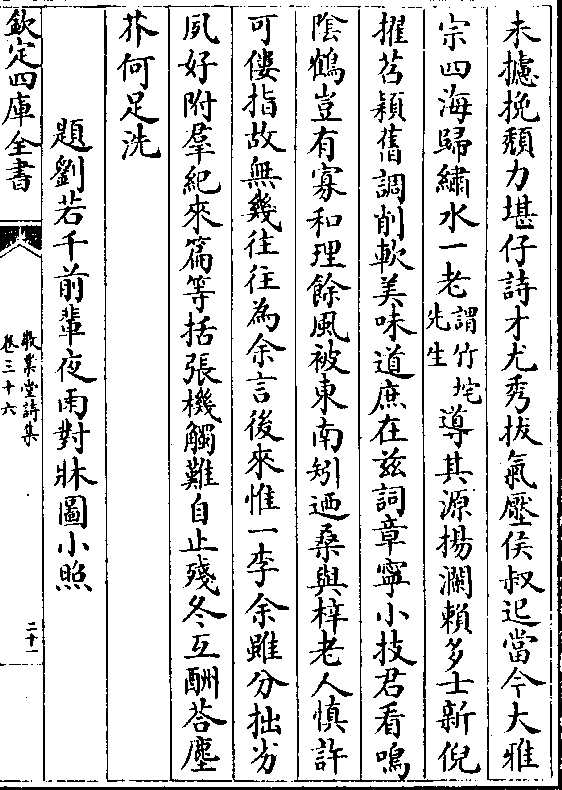 未攄挽頽力堪仔詩才尤秀拔氣壓侯叔𨒪當今大雅
宗四海歸繡水一老謂竹垞先生導其源揚瀾頼多士新倪
擢苕穎舊調削軟美味道庶在兹詞章寧小技君看鳴
陰鶴豈有寡和理餘風被東南矧迺桑與梓老人慎許
可僂指故無幾往往為余言後來惟一李余雖分拙劣
夙好附羣紀來篇等括張機觸難自止殘冬互酬荅塵
芥何足洗
題劉若千前輩夜雨對牀圖小照
欽定四庫全書
敬業堂詩集
卷三十六
二十